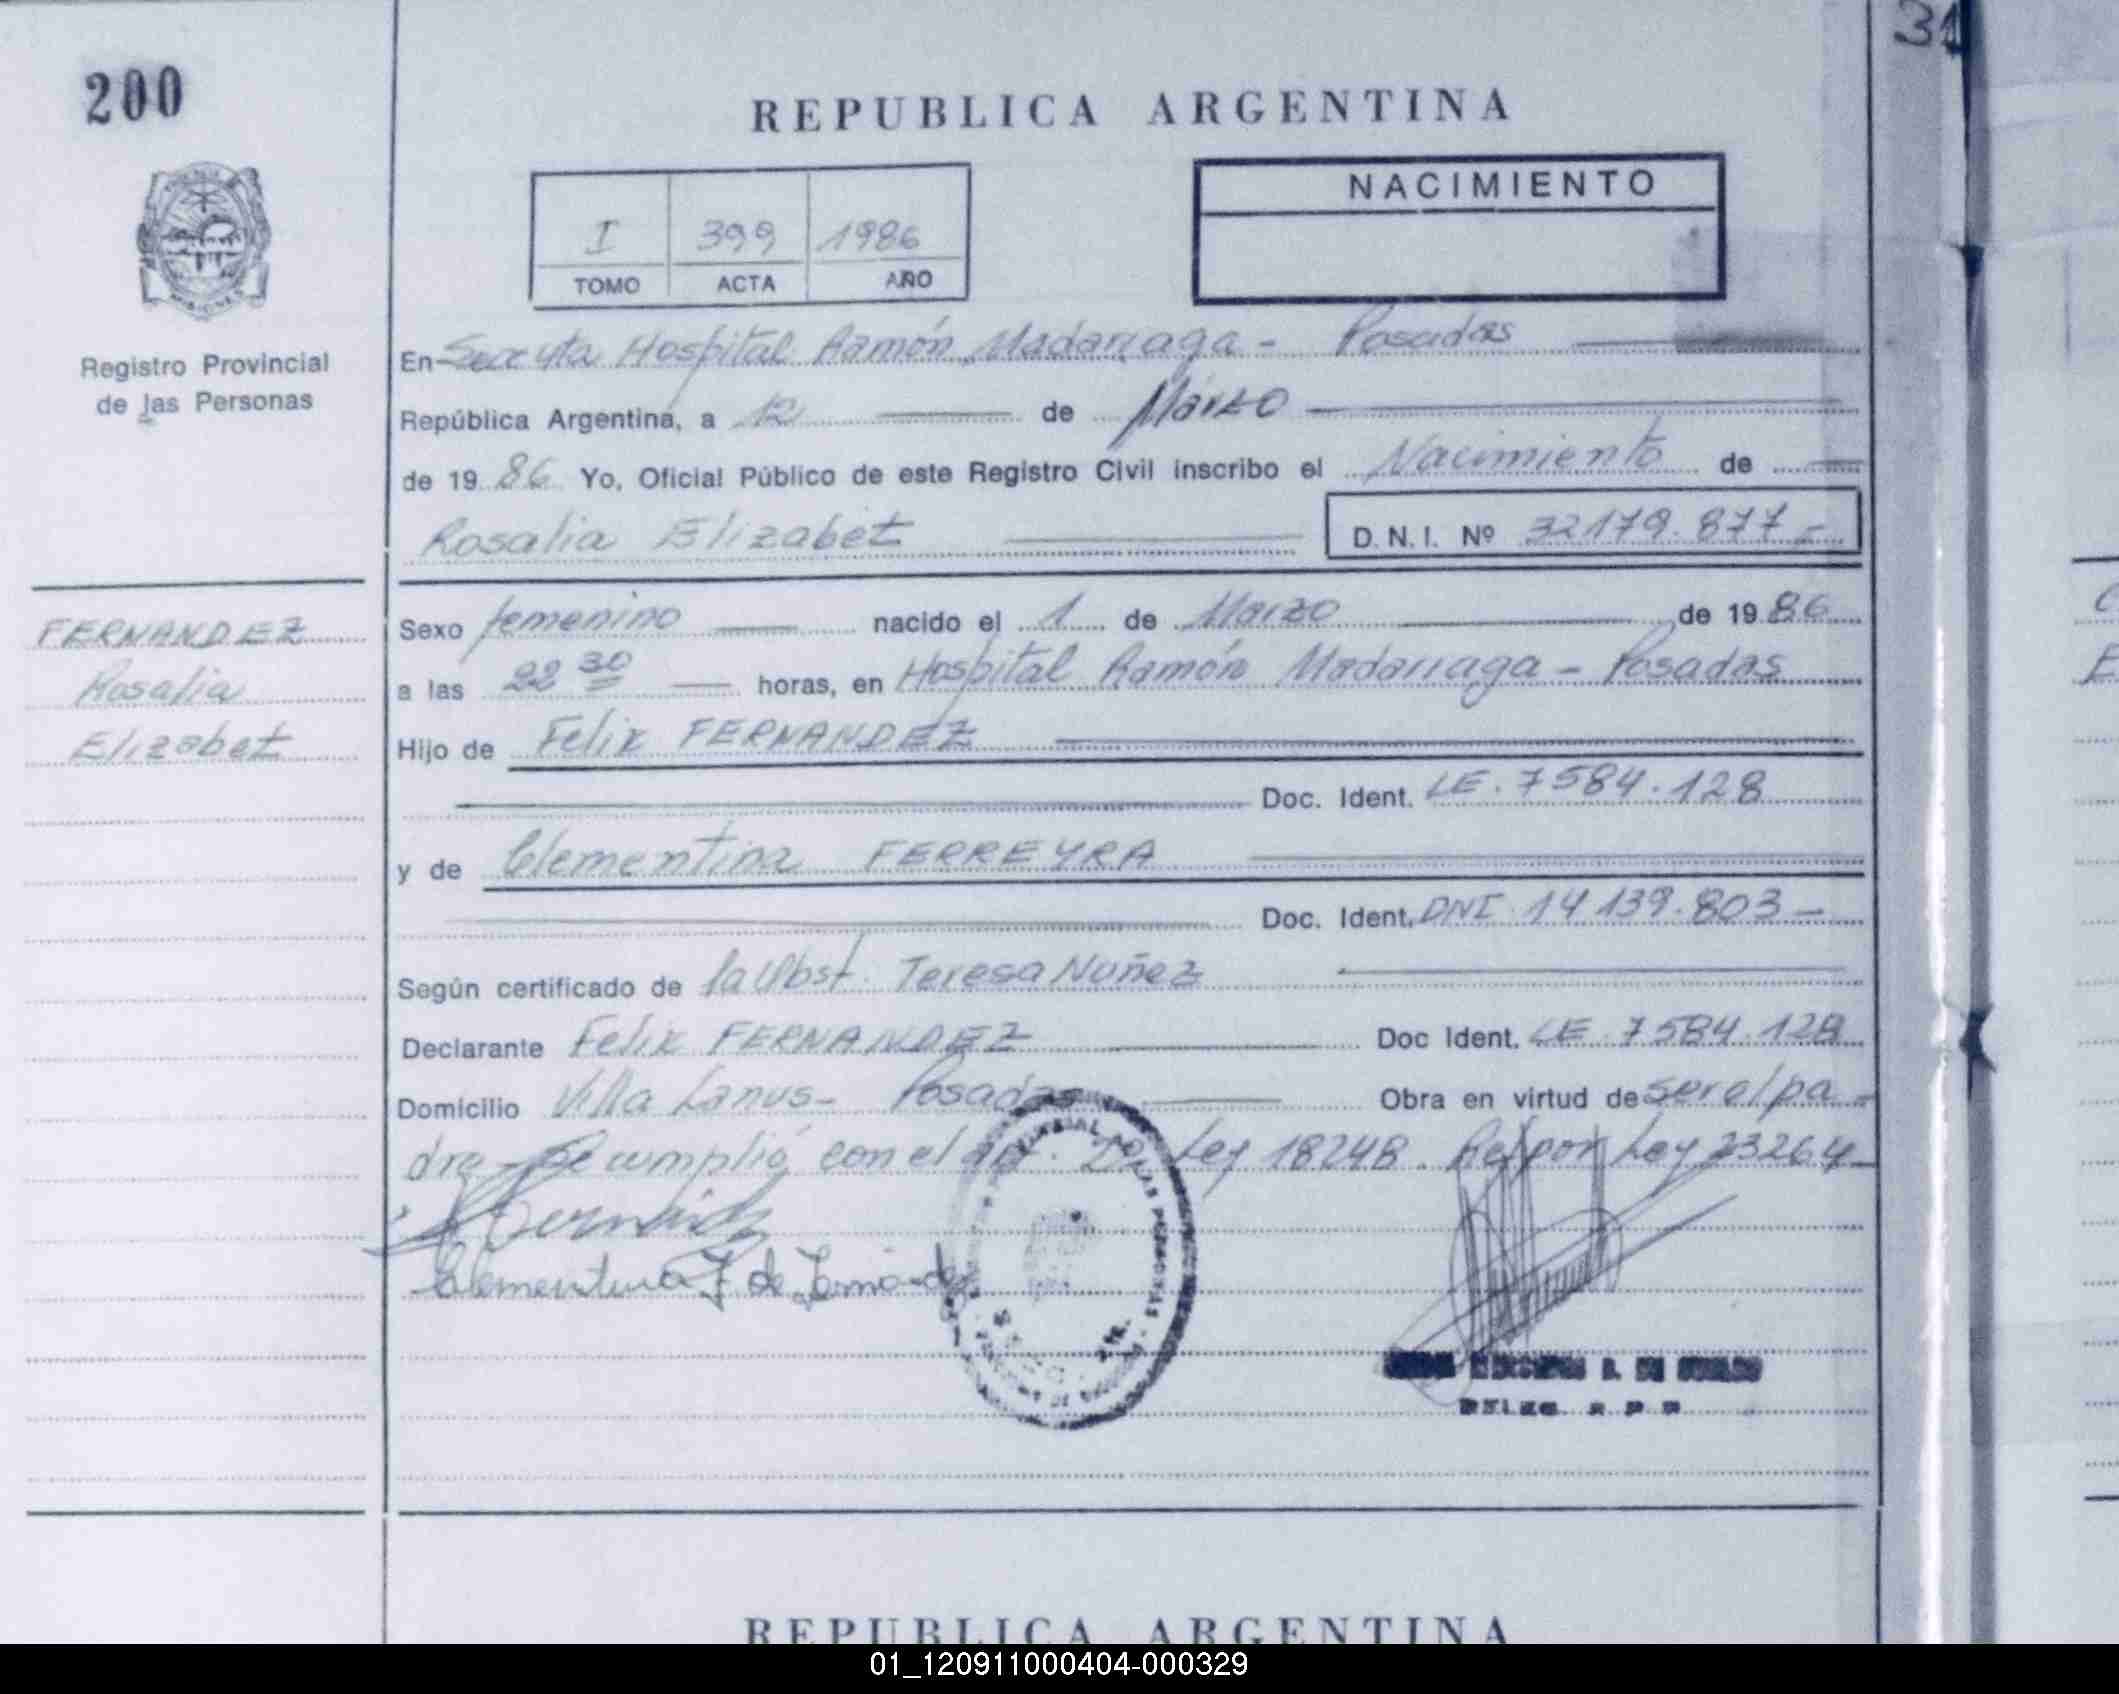 200
31
REPUBLICA ARGENTINA
I 399 1986
TOMO ACTA AÑO
NACIMIENTO
Registro Provincial
de las Personas
En Hospital Ramón Madariaga - Posadas
República Argentina, a 12 de Marzo
de 19 86 Yo, Oficial Público de este Registro Civil inscribo el Nacimiento de
Rosalia Elizabet D.N.I. Nº 32179.877-
FERNANDEZ
Rosalia
Elizabet
Sexo femenino nacido el 1 de Marzo de 19 86
a las 22 30 horas, en Hospital Ramón Madariaga - Posadas
Hijo de Felix FERNANDEZ
Doc. Ident. LE. 7584.128
y de Clementina FERREYRA
Doc. Ident. DNI 14 139.803-
Según certificado de la Obst. Teresa Nuñez
Declarante Felix FERNANDEZ Doc Ident. LE. 7584.128
Domicilio Villa Lanus- Posadas Obra en virtud de ser el pa-
dre - Se cumplió con el art. Ley 18248. Ref por Ley 23264-
Clementina F. de Fernandez
REPUBLICA ARGENTINA
01_120911000404-000329